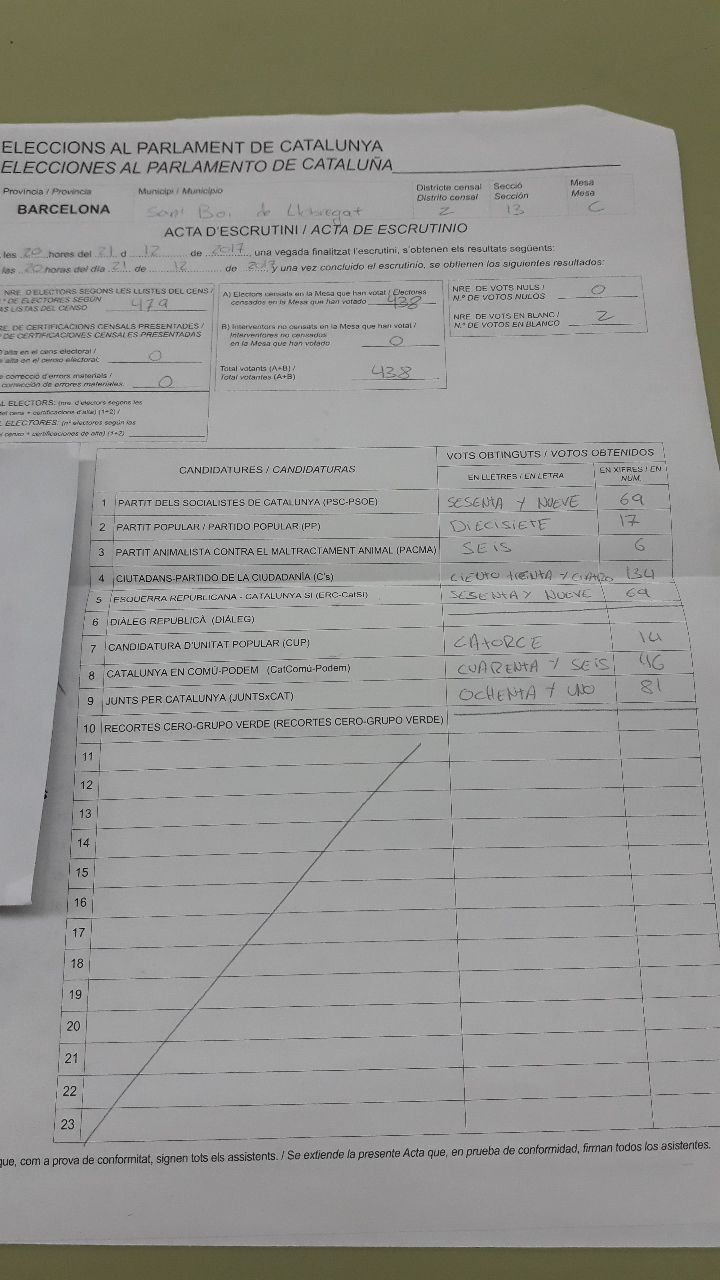 ELECCIONS AL PARLAMENT DE CATALUNYA
ELECCIONES AL PARLAMENTO DE CATALUÑA
Província / Provincia Municipi / Municipio Districte censal / Distrito censal Secció Sección Mesa Mesa
BARCELONA Sant Boi de Llobregat 2 13 C
ACTA D'ESCRUTINI / ACTA DE ESCRUTINIO
les 20 hores del 21 d 12 de 2017, una vegada finalitzat l'escrutini, s'obtenen els resultats següents:
las 20 horas del día 21 de 12 de 2017 y una vez concluido el escrutinio, se obtienen los siguientes resultados:
NRE. D'ELECTORS SEGONS LES LLISTES DEL CENS /
º DE ELECTORES SEGÚN
AS LISTAS DEL CENSO 479
E. DE CERTIFICACIONS CENSALS PRESENTADES /
DE CERTIFICACIONES CENSALES PRESENTADAS
d'alta en el cens electoral /
alta en el censo electoral: 0
correcció d'errors materials /
corrección de errores materiales: 0
L ELECTORS: (nre. d'electors segons les
del cens + certificacions d'alta) (1+2) /
ELECTORES: (nº electores según las
censo + certificaciones de alta) (1+2)
A) Electors censats en la Mesa que han votat / Electores
censados en la Mesa que han votado 438
B) Interventors no censats en la Mesa que han votat /
Interventores no censados
en la Mesa que han votado 0
Total votants (A+B) /
Total votantes (A+B) 438
NRE. DE VOTS NULS /
N.º DE VOTOS NULOS 0
NRE. DE VOTS EN BLANC /
N.º DE VOTOS EN BLANCO 2
CANDIDATURES / CANDIDATURAS
VOTS OBTINGUTS / VOTOS OBTENIDOS
EN LLETRES / EN LETRA EN XIFRES / EN NUM.
1 PARTIT DELS SOCIALISTES DE CATALUNYA (PSC-PSOE) SESENTA Y NUEVE 69
2 PARTIT POPULAR / PARTIDO POPULAR (PP) DIECISIETE 17
3 PARTIT ANIMALISTA CONTRA EL MALTRACTAMENT ANIMAL (PACMA) SEIS 6
4 CIUTADANS-PARTIDO DE LA CIUDADANÍA (C's) CIENTO TREINTA Y CUATRO 134
5 ESQUERRA REPUBLICANA - CATALUNYA SÍ (ERC-CatSí) SESENTA Y NUEVE 69
6 DIÀLEG REPUBLICÀ (DIÀLEG)
7 CANDIDATURA D'UNITAT POPULAR (CUP) CATORCE 14
8 CATALUNYA EN COMÚ-PODEM (CatComú-Podem) CUARENTA Y SEIS 46
9 JUNTS PER CATALUNYA (JUNTSxCAT) OCHENTA Y UNO 81
10 RECORTES CERO-GRUPO VERDE (RECORTES CERO-GRUPO VERDE)
11
12
13
14
15
16
17
18
19
20
21
22
23
que, com a prova de conformitat, signen tots els assistents. / Se extiende la presente Acta que, en prueba de conformidad, firman todos los asistentes.